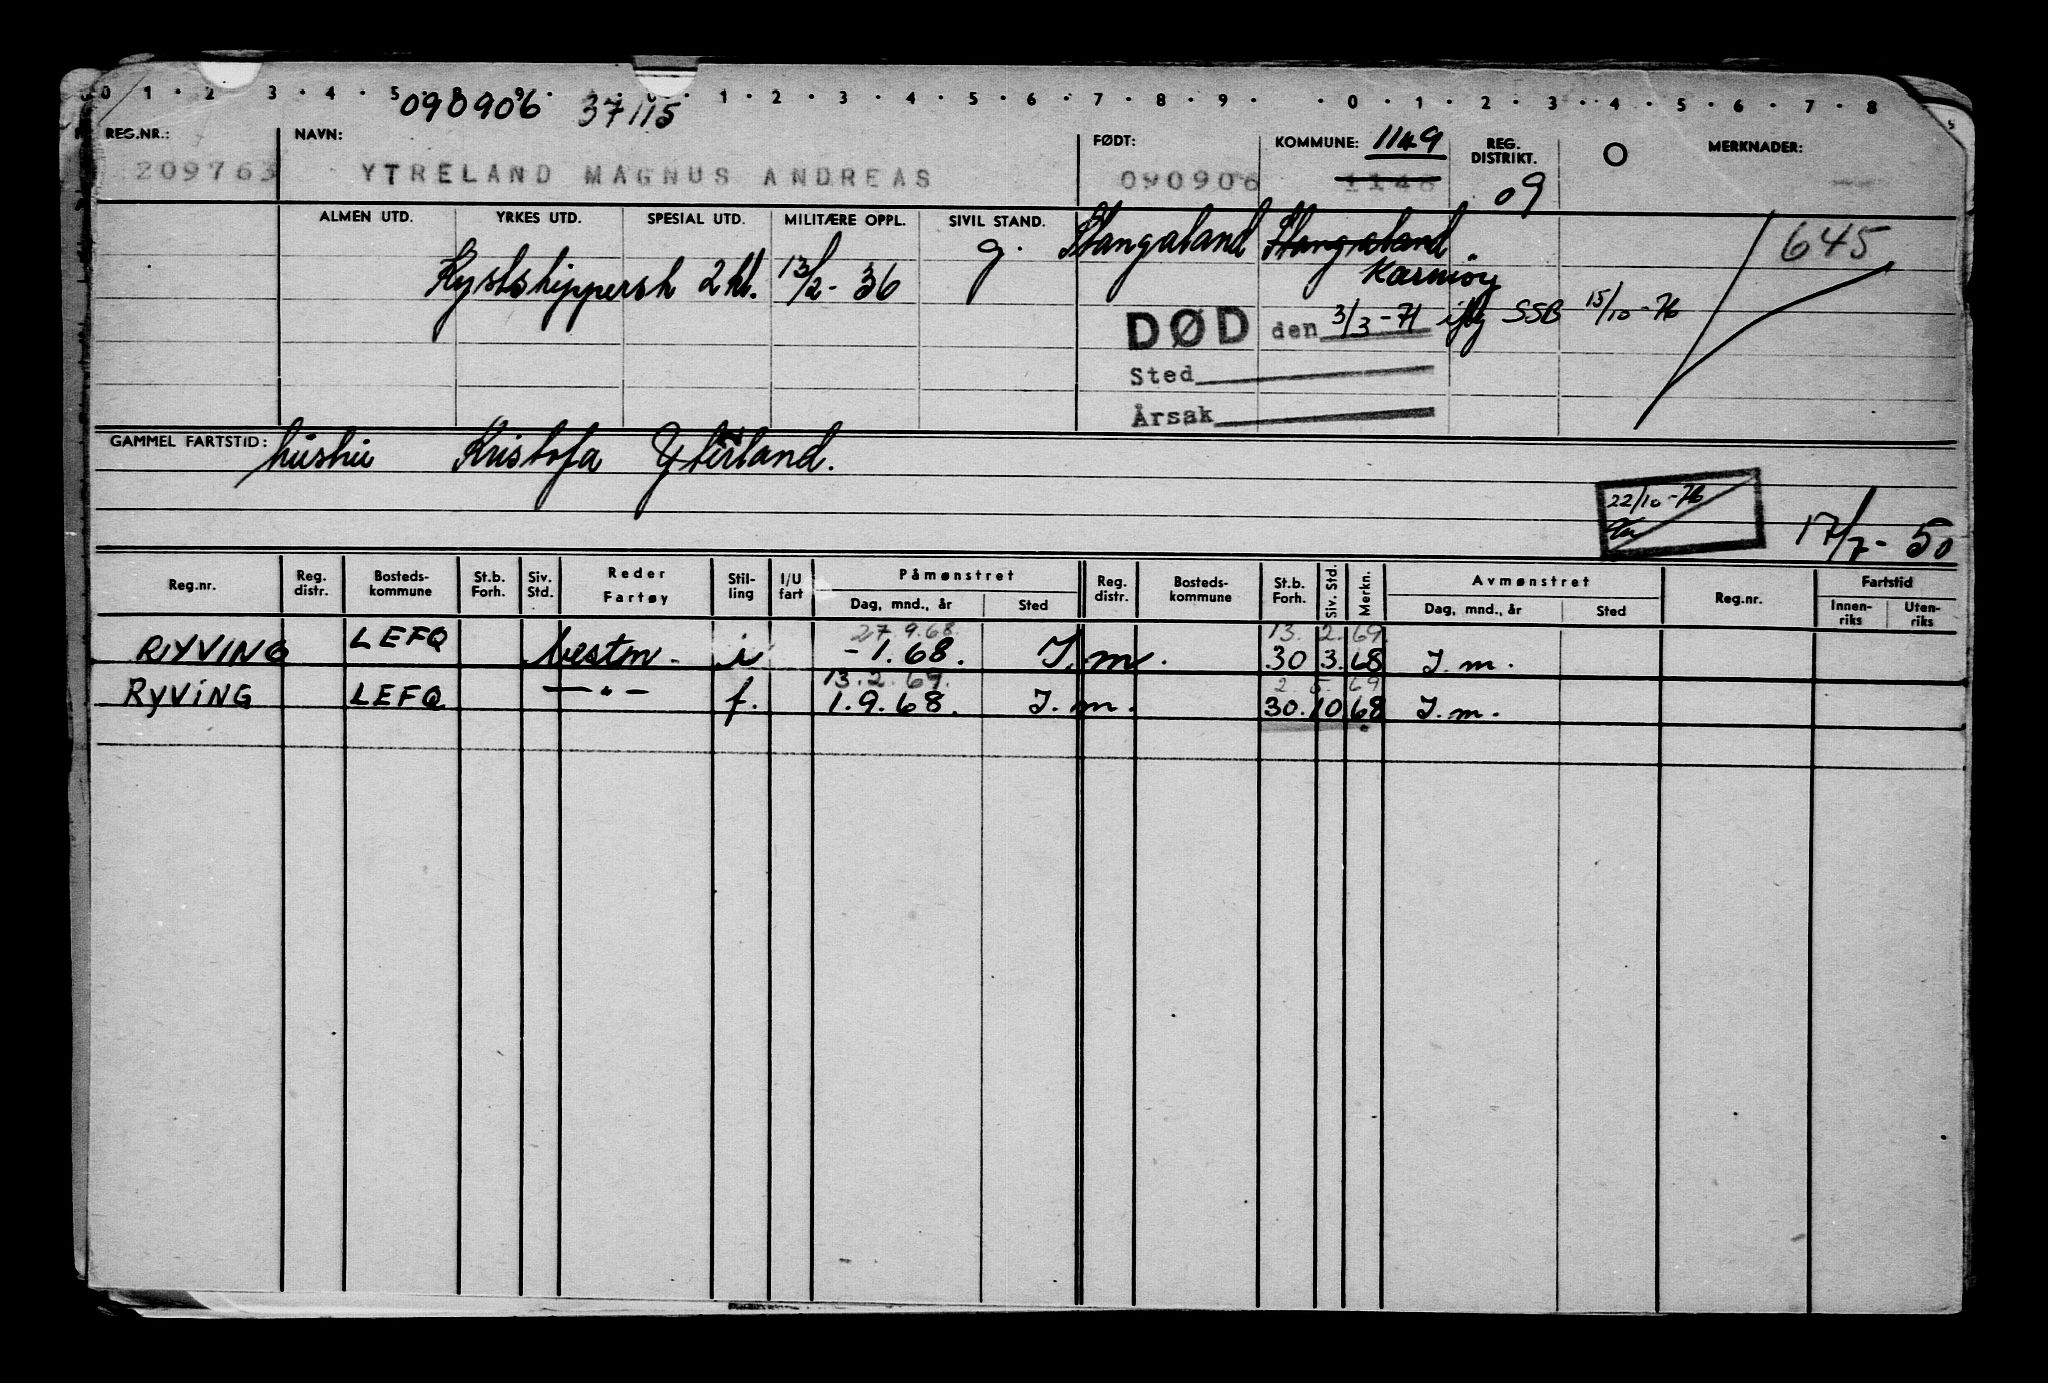 0 1 · 2 · 3 · 4 · 5 · 1 · 2 · 3 · 4 · 5 · 6 · 7 · 8 · 9 · · 0 · 1 · 2 · 3 · 4 · 5 · 6 · 7 · 8
090906 37115
REG.NR.: NAVN: FØDT: KOMMUNE: 1149 REG. DISTRIKT. O MERKNADER:
209763 YTRELAND MAGNUS ANDREAS 090906 1146 09
ALMEN UTD. YRKES UTD. SPESIAL UTD. MILITÆRE OPPL. SIVIL STAND. Stangaland Stangaland 645
Kystskippersk 2 kl. 13/2-36 g. Karmöy
DØD den 3/3-71 iflg SSB 15/10-76
Sted
Årsak
GAMMEL FARTSTID: hustru Kristofa Ytreland.
22/10-76
17/7-50
Reg.nr. Reg. distr. Bosteds-kommune St.b. Forh. Siv. Std. Reder Fartøy Stil-ling I/U fart Påmønstret Reg. distr. Bosteds-kommune St.b. Forh. Siv. Std. Merkn. Avmønstret Reg.nr. Fartstid
Dag, mnd., år Sted Dag, mnd., år Sted Innen-riks Uten-riks
27.9.68. 13. 2. 69.
RIYVING LEFQ bestm. i -1.68. I.m. 30 3. 68 I.m.
13.2.69. 2. 5. 69
RYVING LEFQ —"— f. 1.9.68. I.m. 30. 10 68 I.m.